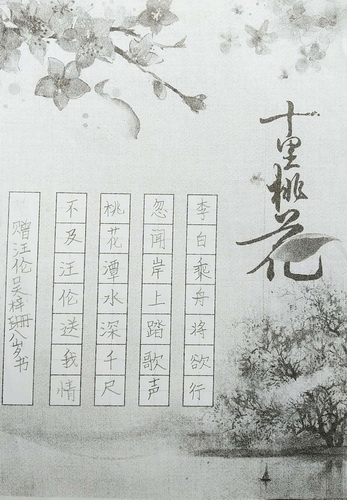 十里桃花
李白乘舟将欲行
忽闻岸上踏歌声
桃花潭水深千尺
不及汪伦送我情
赠汪伦吴梓珊八岁书